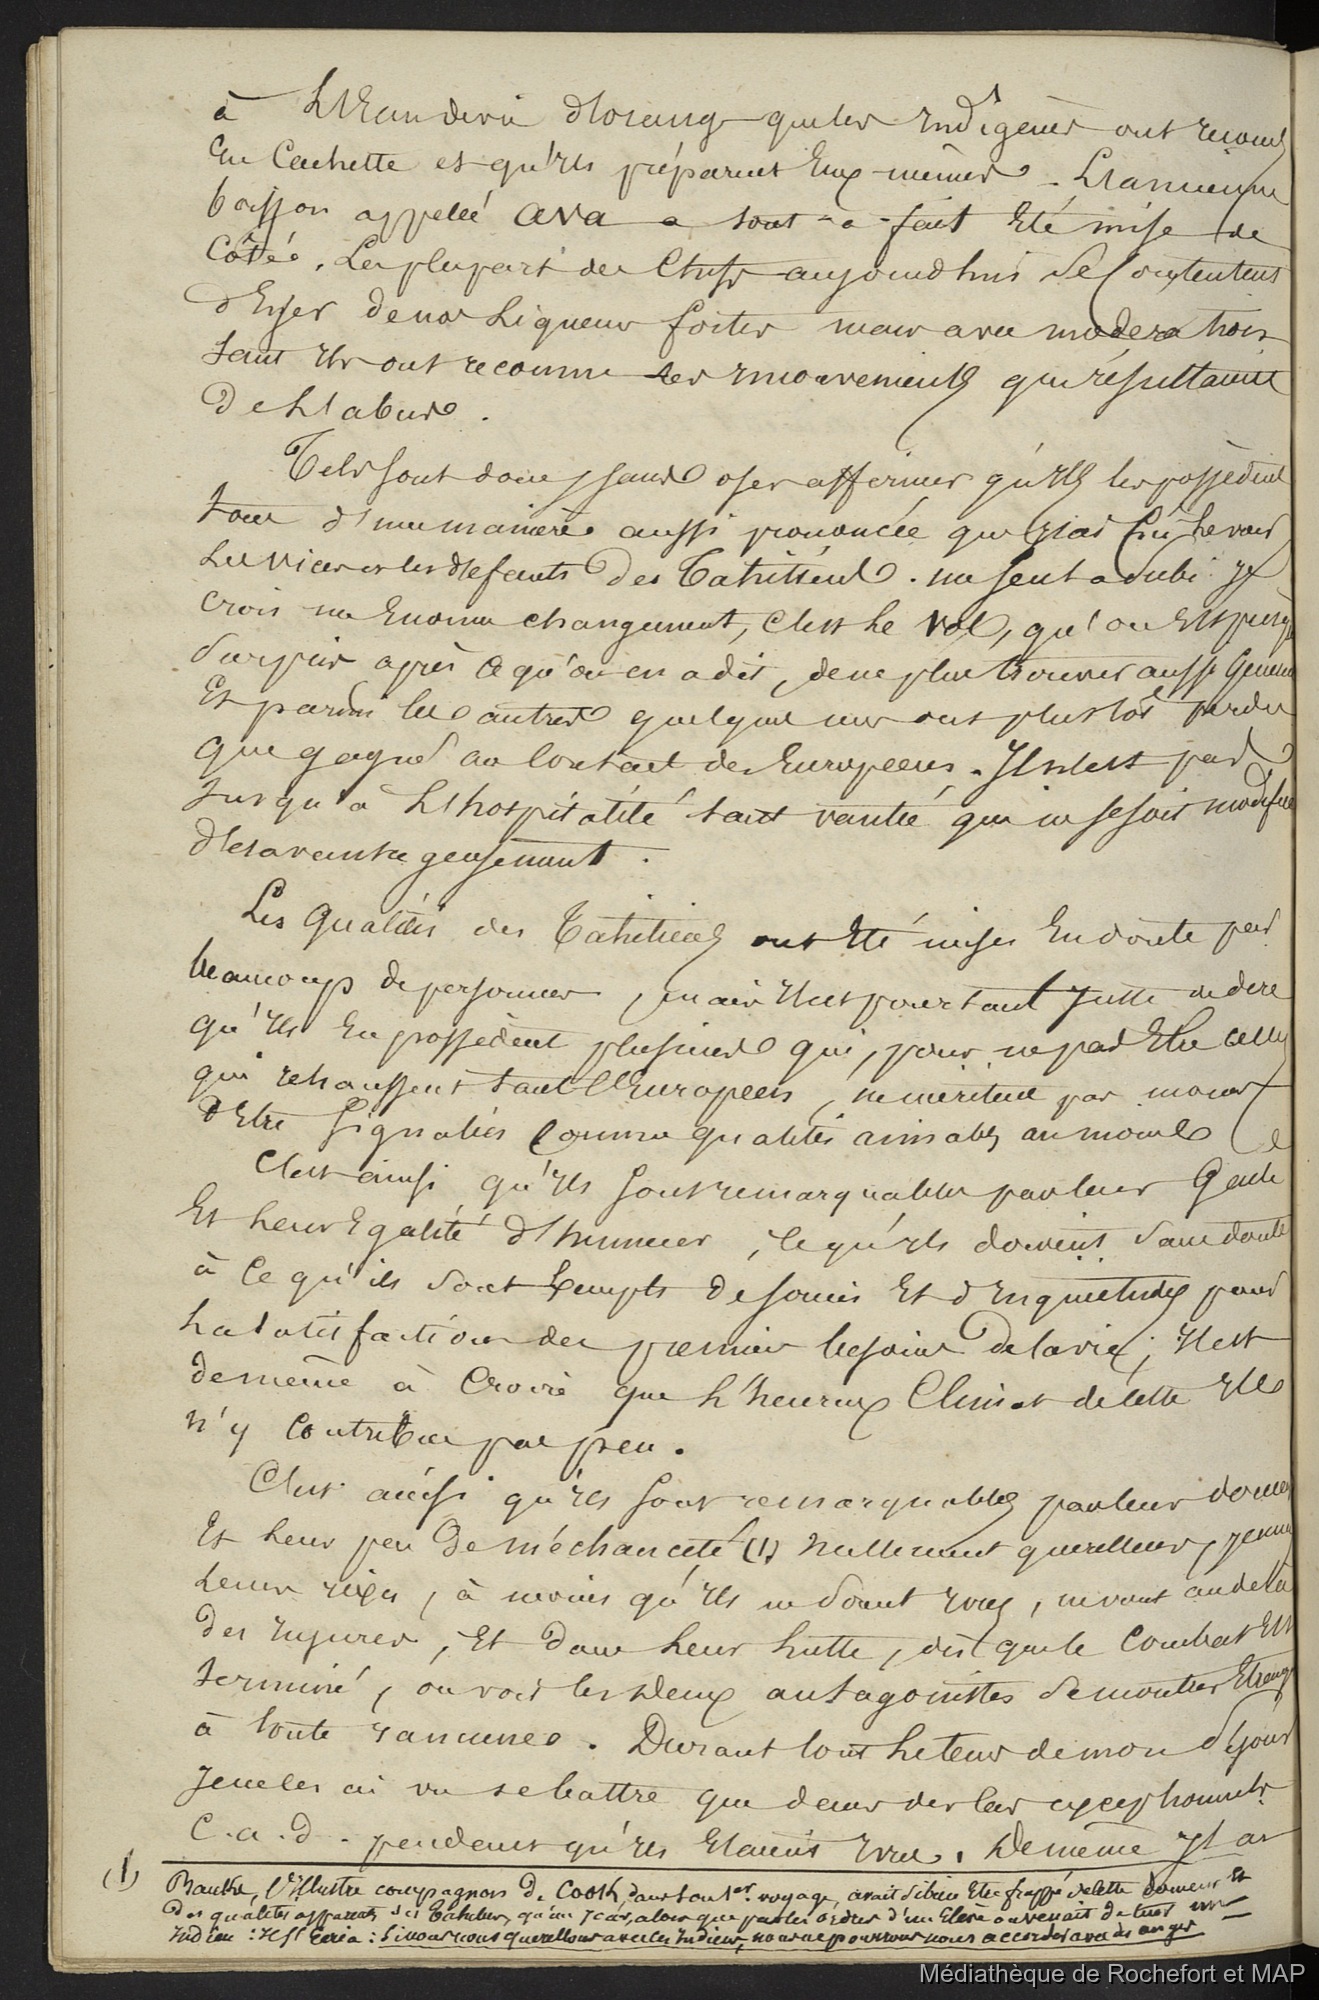 à L'Eau devie d'orange que les indigènes ont recours
En Cachette et qu'ils préparent Eux-mêmes. L'ancienne
boisson appellé ava a tout-a-fait Eté mise de
Côté. La plupart des Chefs aujourd'hui se contentent
d'user de nos Liqueurs fortes mais avec moderation
tant ils ont reconnu les qui résultaient
De L'abus.
Tels sont donc, sans oser affirmer qu'ils les possèdent
tous d'une manière aussi prononcée que
Les vices et les défauts des Tahitiens. un seul a subi je
crois un Enorme changement, C'est Le Vol, qu'on Est presque
surpris après ce qu'on en a dit, de ne plus trouver aussi
Et parmi les autres quelques uns ont plustôt perdu
que gagné au Contact des Européens. Il n'est pas
Jusqu'à L'hospitalité tant vantée qui ne se soit modifiée
désavantageusement.
Les Qualités des Tahitiens ont Eté mises En doute par
beaucoup de personnes, mais il est pourtant Juste de dire
qu'ils En possèdent plusieurs qui, pour ne pas Etre celles
qui rehaussent tant l'Européen, ne méritent pas moins
d'Etre signalées Comme qualités aimables au moins
C'est ainsi qu'ils sont remarquables par leur Gaité
Et Leur Egalité d'humeur, ce qu'ils doivent sans doute
à ce qu'ils sont Exempts de soucis Et d'inquiétudes pour
La satisfaction des premiers besoins de la vie; il est
de même à Croire que L'heureux Climat de cette ile
n'y Contribue pas peu.
C'est aussi qu'ils sont remarquables par leur douceur
Et Leur peu de méchanceté (1) Nullement querelleurs, jamais
Leurs rixes, à moins qu'ils ne soient ivres, ne vont au delà
Des injures, Et dans Leur Lutte, dès que le Combat Est
terminé, on voit les deux antagonistes se montrer Etrangers
à toute rancune. Durant tout Le tems de mon séjour
Je ne les ai vu se battre que dans des Cas exceptionnels
C.a.d. pendant qu'ils Etaient ivres. De même il
(1) Banks, l'illustre compagnon de Cook, dans son 1er voyage, avait si bien Eté frappé de cette douceur Et
Des qualités apparentes des Tahitiens, qu'un jour, alors que par les ordres d'un Elève on venait de tuer un
Indien: Il s'écria: Si nous nous querellons avec les Indiens, nous ne pourrons nous accorder avec des anges
Médiathèque de Rochefort et MAP